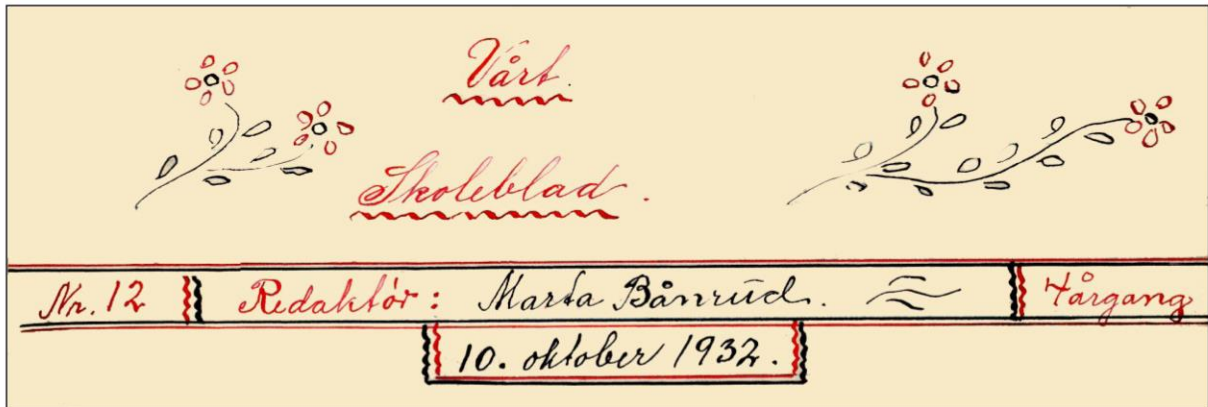 Vårt.
Skoleblad.
Nr. 12 Redaktör: Marta Bånrud. 4årgang
10. oktober 1932.